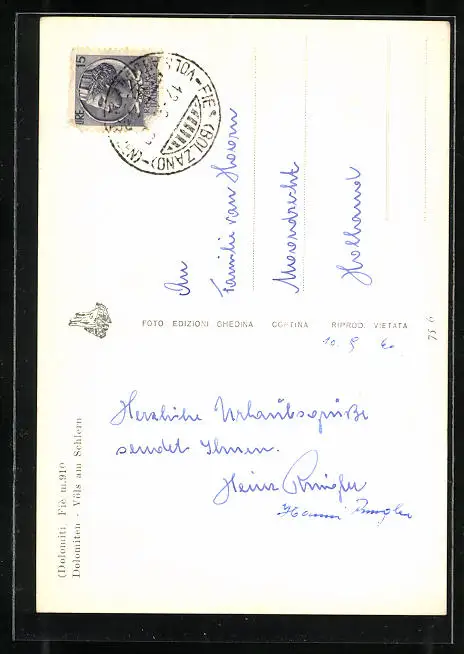 15
LIRE
FIÈ (BOLZANO)
An
Familie van Hoorn
Moordrecht
Holland
FOTO EDIZIONI GHEDINA CORTINA RIPROD. VIETATA
10. 9. 60
Herzliche Urlaubsgrüße
sendet Ihnen.
Heinz
Hanni
(Dolomiti Fiè m.910
Dolomiten - Völs am Schlern